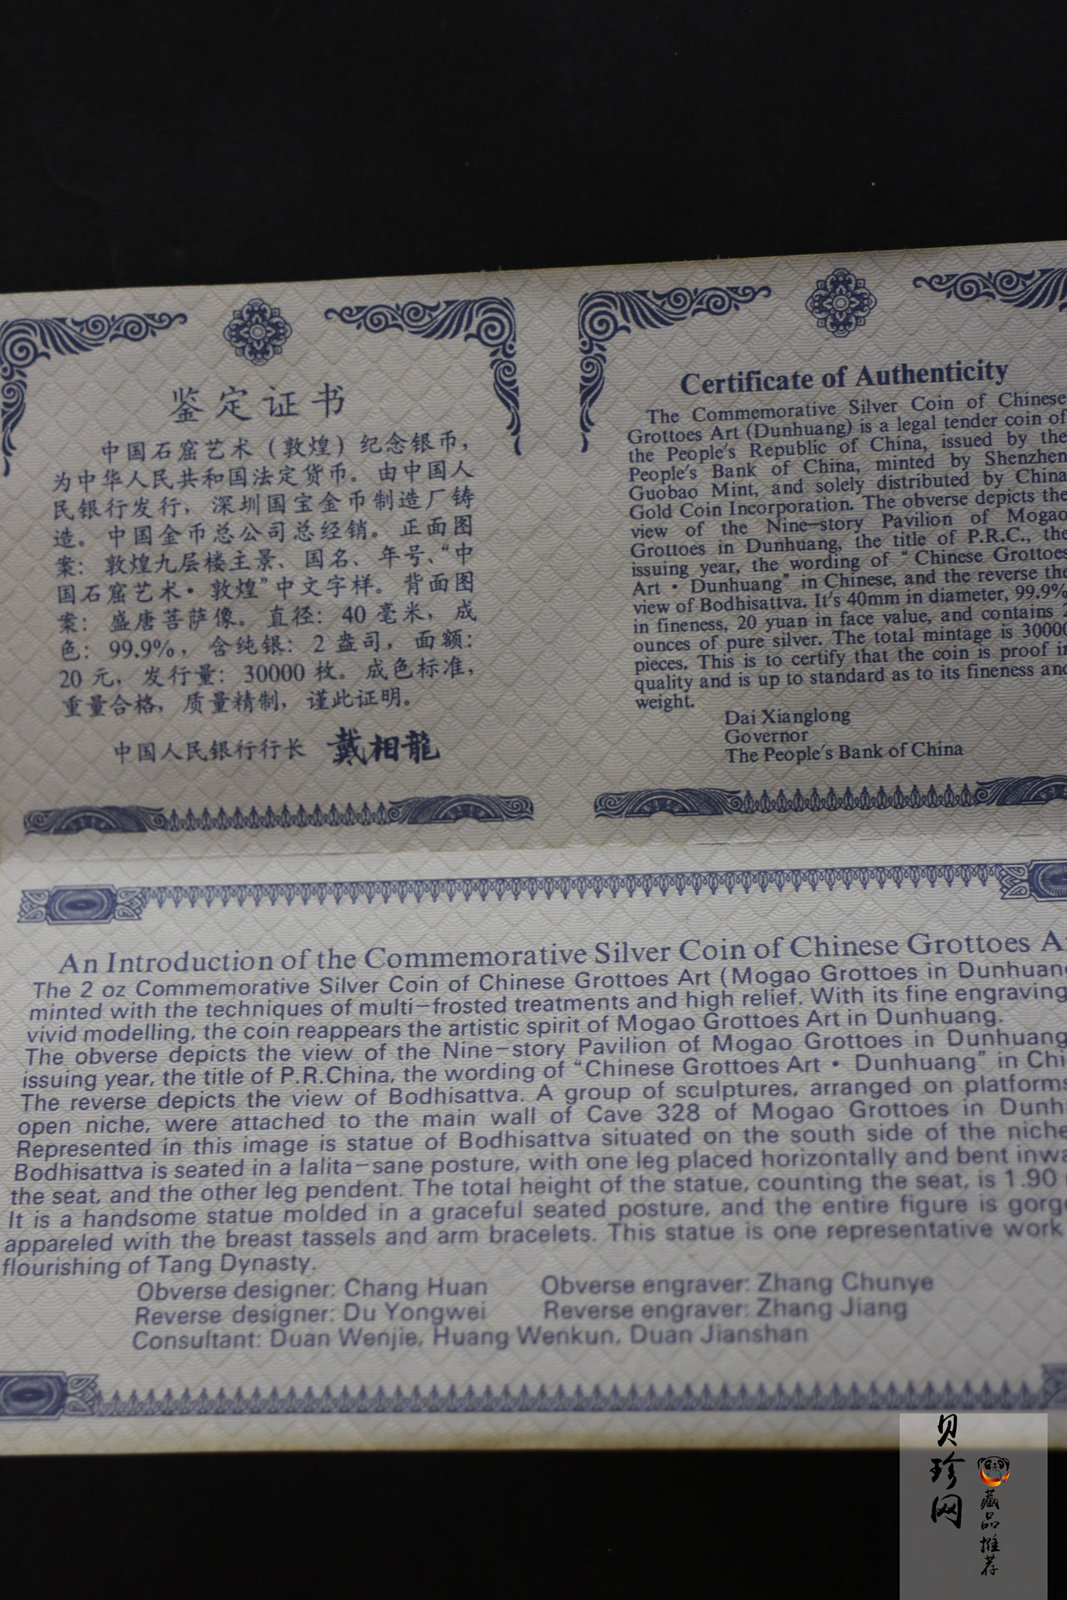 鉴定证书
中国石窟艺术（敦煌）纪念银币，
为中华人民共和国法定货币。由中国人
民银行发行，深圳国宝金币制造厂铸
造。中国金币总公司总经销。正面图
案：敦煌九层楼主景、国名、年号、“中
国石窟艺术·敦煌”中文字样。背面图
案：盛唐菩萨像。直径：40毫米，成
色：99.9%，含纯银：2盎司，面额：
20元，发行量：30000枚。成色标准，
重量合格，质量精制，谨此证明。
中国人民银行行长 戴相龍
Certificate of Authenticity
The Commemorative Silver Coin of Chinese
Grottoes Art (Dunhuang) is a legal tender coin of
the People's Republic of China, issued by the
People's Bank of China, minted by Shenzhen
Guobao Mint, and solely distributed by China
Gold Coin Incorporation. The obverse depicts the
view of the Nine-story Pavilion of Mogao
Grottoes in Dunhuang, the title of P.R.C., the
issuing year, the wording of “Chinese Grottoes
Art · Dunhuang” in Chinese, and the reverse the
view of Bodhisattva. It's 40mm in diameter, 99.9%
in fineness, 20 yuan in face value, and contains 2
ounces of pure silver. The total mintage is 30000
pieces. This is to certify that the coin is proof in
quality and is up to standard as to its fineness and
weight.
Dai Xianglong
Governor
The People's Bank of China
An Introduction of the Commemorative Silver Coin of Chinese Grottoes A
The 2 oz Commemorative Silver Coin of Chinese Grottoes Art (Mogao Grottoes in Dunhuan
minted with the techniques of multi-frosted treatments and high relief. With its fine engraving
vivid modelling, the coin reappears the artistic spirit of Mogao Grottoes Art in Dunhuang.
The obverse depicts the view of the Nine-story Pavilion of Mogao Grottoes in Dunhuang
issuing year, the title of P.R.China, the wording of “Chinese Grottoes Art · Dunhuang” in Chi
The reverse depicts the view of Bodhisattva. A group of sculptures, arranged on platforms
open niche, were attached to the main wall of Cave 328 of Mogao Grottoes in Dunh
Represented in this image is statue of Bodhisattva situated on the south side of the niche
Bodhisattva is seated in a lalita-sane posture, with one leg placed horizontally and bent inwa
the seat, and the other leg pendent. The total height of the statue, counting the seat, is 1.90
It is a handsome statue molded in a graceful seated posture, and the entire figure is gorg
appareled with the breast tassels and arm bracelets. This statue is one representative work
flourishing of Tang Dynasty.
Obverse designer: Chang Huan Obverse engraver: Zhang Chunye
Reverse designer: Du Yongwei Reverse engraver: Zhang Jiang
Consultant: Duan Wenjie, Huang Wenkun, Duan Jianshan
贝珍网
藏品推荐